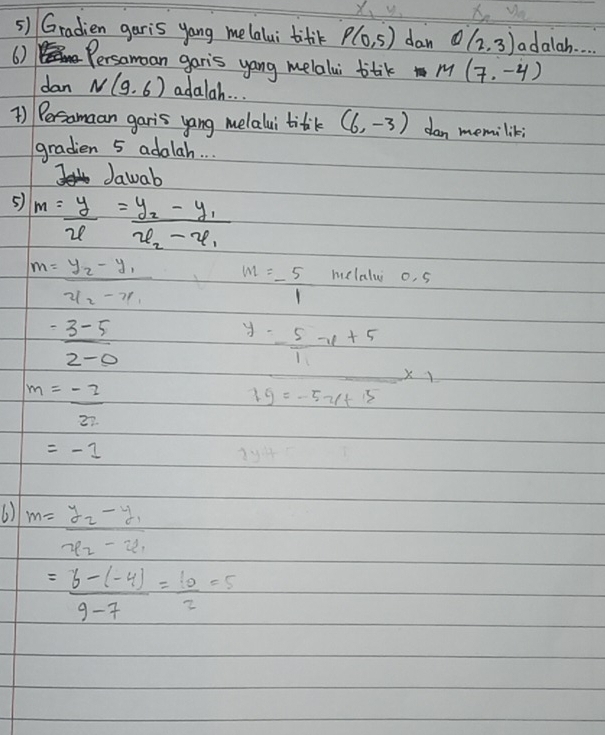 x₁ y₁ x₂ y₂
5) Gradien garis yang melalui titik P(0,5) dan Q(2,3) adalah....
6) Persamaan garis yang melalui titik M (7,-4)
dan N (9.6) adalah...
7) Persamaan garis yang melalui titik (6,-3) dan memiliki
gradien 5 adalah...
Jawab
5) m = y/x = y₂ - y₁ / x₂ - x₁
m = y₂ - y₁ / x₂ - x₁
= 3-5 / 2-0
m = -2
= -1
m = -5/1 melalui 0,5
y = -5/1 x + 5
= -5x + 5
6) m = y₂ - y₁ / x₂ - x₁
= 6-(-4) / 9-7 = 10/2 = 5